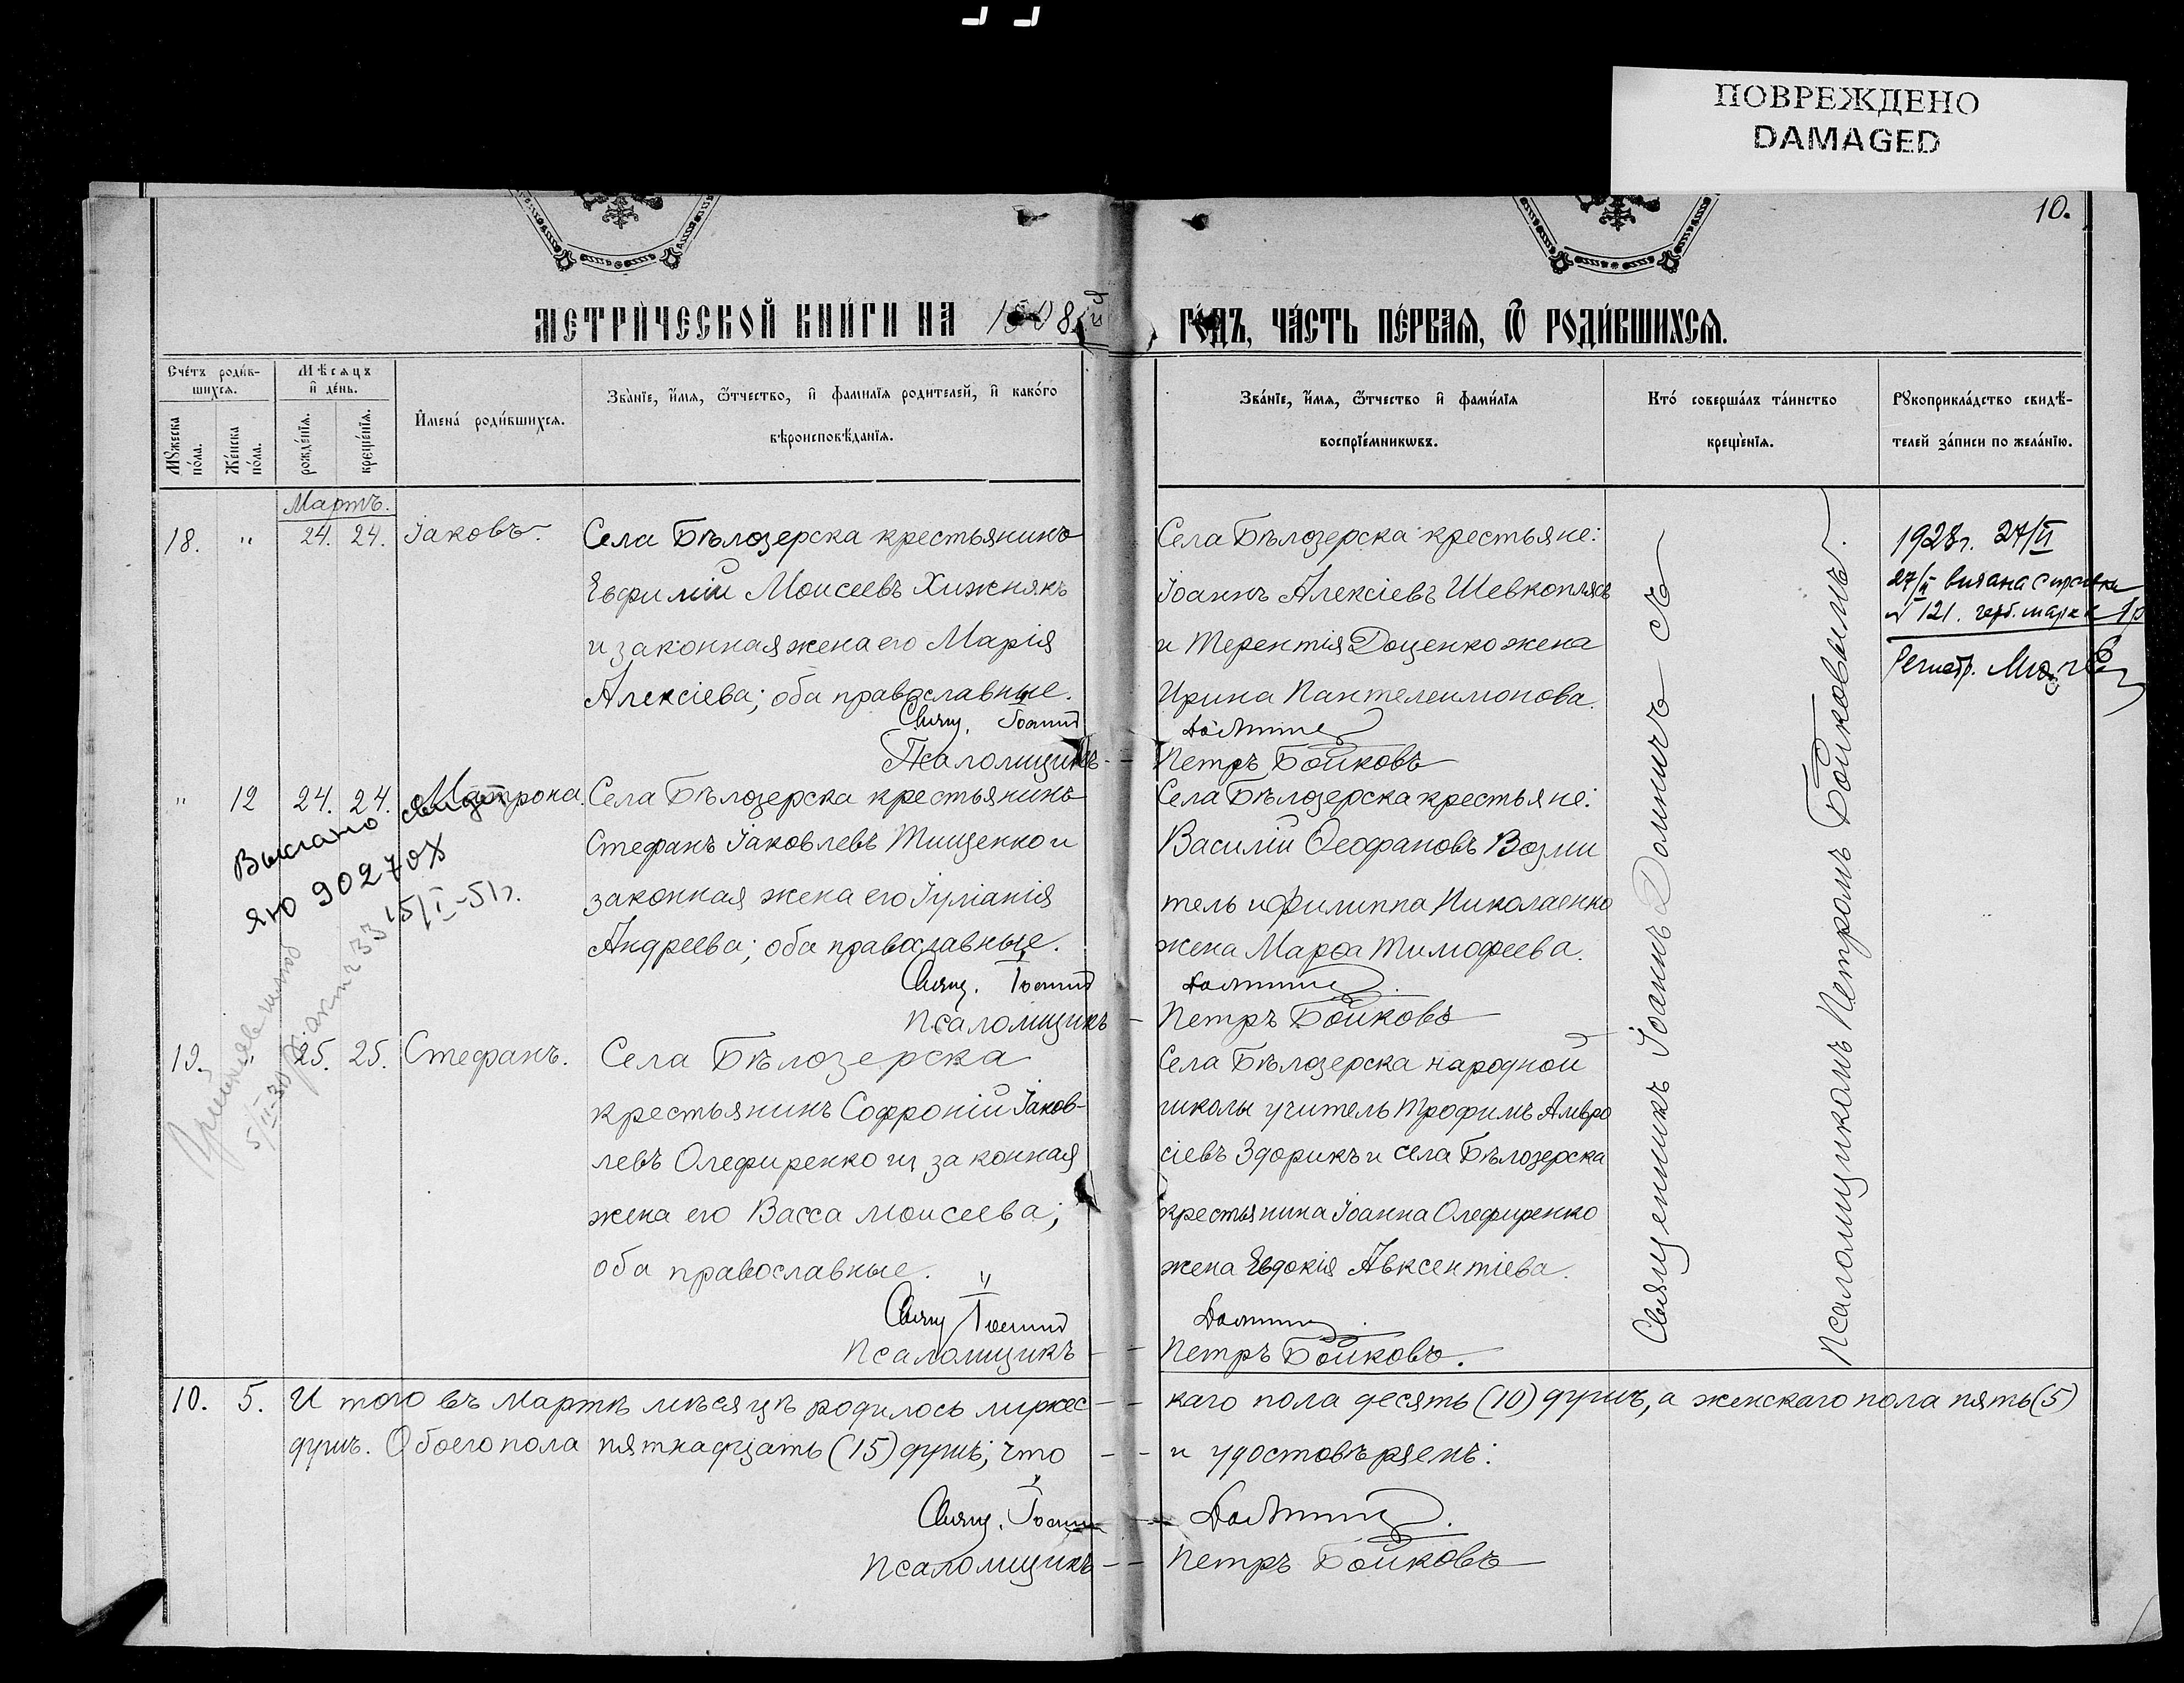 ПОВРЕЖДЕНО
DAMAGED
10.
МЕТРИ́ЧЕСКОЙ КНИ́ГИ НА 1908й
ГО́ДЪ, ЧА́СТЬ ПЕ́РВАѦ, Ѿ РОДИ́ВШИХСѦ.
Сче́тъ роди́в-
шихсѧ.
Мꙋ́жеска по́ла.
Же́нска по́ла.
Мѣ́сѧцъ
и де́нь.
рожде́нїѧ.
креще́нїѧ.
И҆мена̀ роди́вшихсѧ.
Зва́нїе, и҆́мѧ, ѻ҆́тчество, и҆ фами́лїѧ роди́телей, и҆ како́го
вѣроисповѣ́данїѧ.
Зва́нїе, и҆́мѧ, ѻ҆́тчество и҆ фами́лїѧ
воспрїе́мникѡвъ.
Кто̀ соверша́лъ та́инство
креще́нїѧ.
Рꙋкоприкла́дство свидѣ́-
телей за́писи по жела́нїю.
Мартъ.
18. " 24. 24. Іаковъ.
Села Бѣлозерска крестьянинъ
Евфимій Моисеевъ Хижнякъ
и законная жена его Марія
Алексіева; оба православные.
Свящ. Іоаннъ
Псаломщикъ -
Села Бѣлозерска крестьяне:
Іоаннъ Алексіевъ Шевкоплясъ
и Терентія Доценко жена
Ирина Пантелеимонова.
Долиничъ
- Петръ Бойковъ
1928г. 27/II
27/II видана справка
№ 121. герб. марка 1р
Регистр.
" 12 24. 24. Матрона.
Села Бѣлозерска крестьянинъ
Стефанъ Іаковлевъ Тищенко и
законная жена его Іуліанія
Андреева; оба православные.
Свящ. Іоаннъ
Псаломщикъ -
Села Бѣлозерска крестьяне:
Василій Ѳеофановъ Возми
тель и Филиппа Николаенко
жена Марѳа Тимофеева.
Долиничъ.
Петръ Бойковъ
Выслано свидет
ЯЮ 902707
15/I-51г.
19. " 25. 25. Стефанъ.
Села Бѣлозерска
крестьянинъ Софроній Іаков-
левъ Олефиренко и законная
жена его Васса Моисеева;
оба православные.
Свящ Іоаннъ
Псаломщикъ -
Села Бѣлозерска народной
школы учитель Трофимъ Амвро
сіевъ Здорикъ и села Бѣлозерска
крестьянина Іоанна Олефиренко
жена Евдокія Авксентіева.
Долиничъ.
- Петръ Бойковъ.
Священникъ Іоаннъ Долиничъ съ
Псаломщикомъ Петромъ Бойковымъ.
10. 5. И того въ Мартѣ мѣсяцѣ родилось мужес-
- каго пола десять (10) душъ, а женскаго пола пять (5)
душъ. Обоего пола пятнадцать (15) душъ; что -
- и удостовѣряемъ:
Свящ. Іоаннъ
- Долиничъ.
Псаломщикъ -
- Петръ Бойковъ